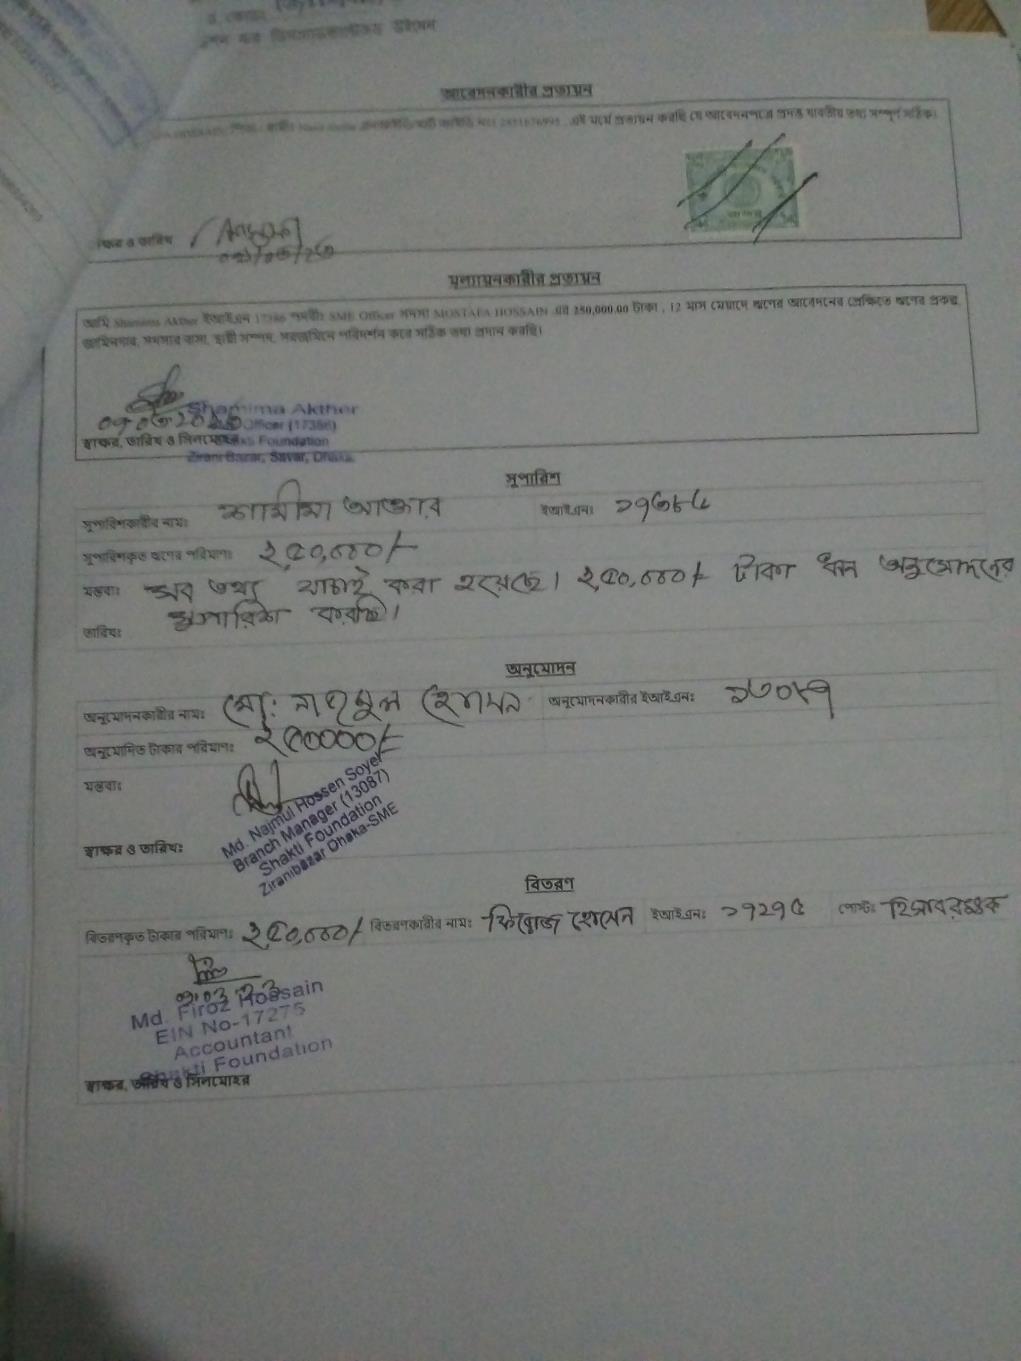 আবেদনকারীর প্রত্যয়ন
এই মর্মে প্রত্যয়ন করছি যে আবেদনপত্রে প্রদত্ত যাবতীয় তথ্য সম্পূর্ণ সঠিক।
ও তারিখ
মূল্যায়নকারীর প্রত্যয়ন
আমি Shamima Akther ইআইএন 17386 পদবীঃ SME Officer সদস্য MOSTAFA HOSSAIN এর 250,000.00 টাকা , 12 মাস মেয়াদে ঋণের আবেদনের প্রেক্ষিতে ঋণের প্রকল্প,
জামিনদার, সদস্যর বাসা, স্থায়ী সম্পদ, সরেজমিনে পরিদর্শন করে সঠিক তথ্য প্রদান করছি।
Shamima Akther
Officer (17386)
স্বাক্ষর, তারিখ ও সিলমোহর
Foundation
Zirani Bazar, Savar, Dhaka.
সুপারিশ
সুপারিশকারীর নামঃ শামীমা আক্তার ইআইএনঃ ১৭৩৮৬
সুপারিশকৃত ঋণের পরিমাণঃ ২,৫০,০০০/-
মন্তব্যঃ সব তথ্য যাচাই করা হয়েছে। ২,৫০,০০০/- টাকা ঋন অনুমোদনের
সুপারিশ করছি।
তারিখঃ
অনুমোদন
অনুমোদনকারীর নামঃ মো: নাজমুল হোসেন অনুমোদনকারীর ইআইএনঃ ১৩০৮৭
অনুমোদিত টাকার পরিমাণঃ ২৫০০০০/-
মন্তব্যঃ
Md. Najmul Hossen Soyel
Branch Manager (13087)
Shakti Foundation
Ziranibazar Dhaka-SME
স্বাক্ষর ও তারিখঃ
বিতরণ
বিতরণকৃত টাকার পরিমাণঃ ২,৫০,০০০/- বিতরণকারীর নামঃ ফিরোজ হোসেন ইআইএনঃ ১৭২৭৫ পোস্টঃ হিসাবরক্ষক
Md. Firoz Hossain
EIN No-17275
Accountant
Shakti Foundation
স্বাক্ষর, তারিখ ও সিলমোহর